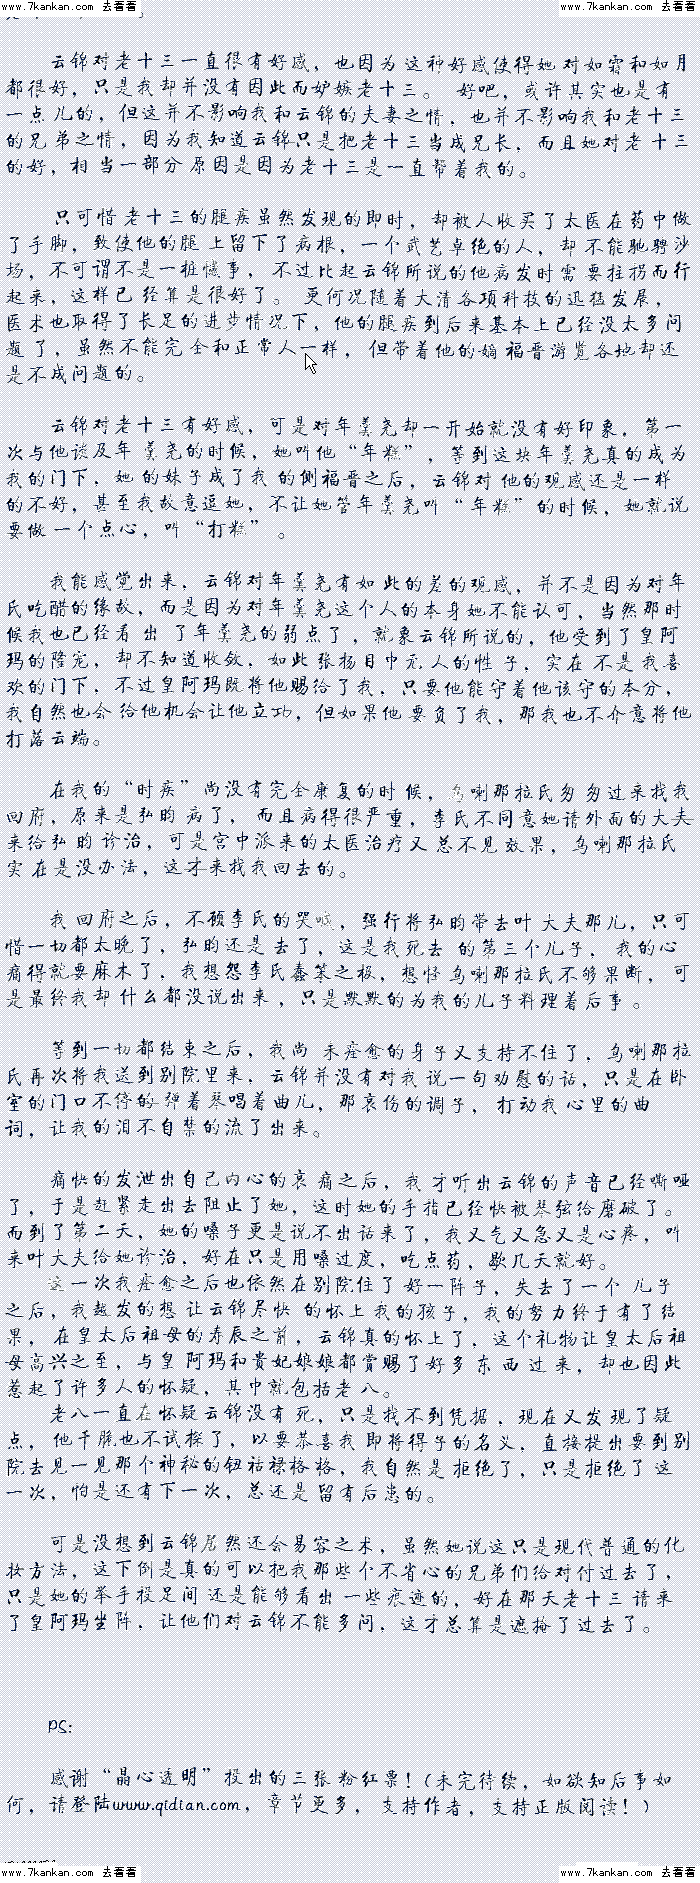 www.7kankan.com 去看看 www.7kankan.com 去看看
云锦对老十三一直很有好感，也因为这种好感使得她对如霜和如月
都很好，只是我却并没有因此而妒嫉老十三。 好吧，或许其实也是有
一点儿的，但这并不影响我和云锦的夫妻之情，也并不影响我和老十三
的兄弟之情，因为我知道云锦只是把老十三当成兄长，而且她对老十三
的好，相当一部分原因是因为老十三是一直帮着我的。
只可惜老十三的腿疾虽然发现的即时，却被人收买了太医在药中做
了手脚，致使他的腿上留下了病根，一个武艺卓绝的人，却不能驰骋沙
场，不可谓不是一桩憾事，不过比起云锦所说的他病发时需要拄拐而行
起来，这样已经算是很好了。 更何况随着大清各项科技的迅猛发展，
医术也取得了长足的进步情况下，他的腿疾到后来基本上已经没太多问
题了，虽然不能完全和正常人一样，但带着他的嫡福晋游览各地却还
是不成问题的。
云锦对老十三有好感，可是对年羹尧却一开始就没有好印象，第一
次与他谈及年羹尧的时候，她叫他“年糕”，等到这块年羹尧真的成为
我的门下，她的妹子成了我的侧福晋之后，云锦对他的观感还是一样
的不好，甚至我故意逗她，不让她管年羹尧叫“年糕”的时候，她就说
要做一个点心，叫“打糕”。
我能感觉出来，云锦对年羹尧有如此的差的观感，并不是因为对年
氏吃醋的缘故，而是因为对年羹尧这个人的本身她不能认可，当然那时
候我也已经看出了年羹尧的弱点了，就象云锦所说的，他受到了皇阿
玛的隆宠，却不知道收敛，如此张扬目中无人的性子，实在不是我喜
欢的门下，不过皇阿玛既将他赐给了我，只要他能守着他该守的本分，
我自然也会给他机会让他立功，但如果他要负了我，那我也不介意将他
打落云端。
在我的“时疾”尚没有完全康复的时候，乌喇那拉氏匆匆过来找我
回府，原来是弘昀病了，而且病得很严重，李氏不同意她请外面的大夫
来给弘昀诊治，可是宫中派来的太医治疗又总不见效果，乌喇那拉氏
实在是没办法，这才来找我回去的。
我回府之后，不顾李氏的哭喊，强行将弘昀带去叶大夫那儿，只可
惜一切都太晚了，弘昀还是去了，这是我死去的第三个儿子，我的心
痛得就要麻木了，我想怨李氏蠢笨之极，想怪乌喇那拉氏不够果断，可
是最终我却什么都没说出来，只是默默的为我的儿子料理着后事。
等到一切都结束之后，我尚未痊愈的身子又支持不住了，乌喇那拉
氏再次将我送到别院里来，云锦并没有对我说一句劝慰的话，只是在卧
室的门口不停的弹着琴唱着曲儿，那哀伤的调子，打动我心里的曲
词，让我的泪不自禁的流了出来。
痛快的发泄出自己内心的哀痛之后，我才听出云锦的声音已经嘶哑
了，于是赶紧走出去阻止了她，这时她的手指已经快被琴弦给磨破了。
而到了第二天，她的嗓子更是说不出话来了，我又气又急又是心疼，叫
来叶大夫给她诊治，好在只是用嗓过度，吃点药，歇几天就好。
这一次我痊愈之后也依然在别院住了好一阵子，失去了一个儿子
之后，我越发的想让云锦尽快的怀上我的孩子，我的努力终于有了结
果，在皇太后祖母的寿辰之前，云锦真的怀上了，这个礼物让皇太后祖
母高兴之至，与皇阿玛和贵妃娘娘都赏赐了好多东西过来，却也因此
惹起了许多人的怀疑，其中就包括老八。
老八一直在怀疑云锦没有死，只是找不到凭据，现在又发现了疑
点，他干脆也不试探了，以要恭喜我即将得子的名义，直接提出要到别
院去见一见那个神秘的钮祜禄格格，我自然是拒绝了，只是拒绝了这
一次，怕是还有下一次，总还是留有后患的。
可是没想到云锦居然还会易容之术，虽然她说这只是现代普通的化
妆方法，这下倒是真的可以把我那些个不省心的兄弟们给对付过去了，
只是她的举手投足间还是能够看出一些痕迹的，好在那天老十三请来
了皇阿玛坐阵，让他们对云锦不能多问，这才总算是遮掩了过去了。
PS:
感谢“晶心透明”投出的三张粉红票！(未完待续，如欲知后事如
何，请登陆www.qidian.com，章节更多，支持作者，支持正版阅读！)
www.7kankan.com 去看看 www.7kankan.com 去看看